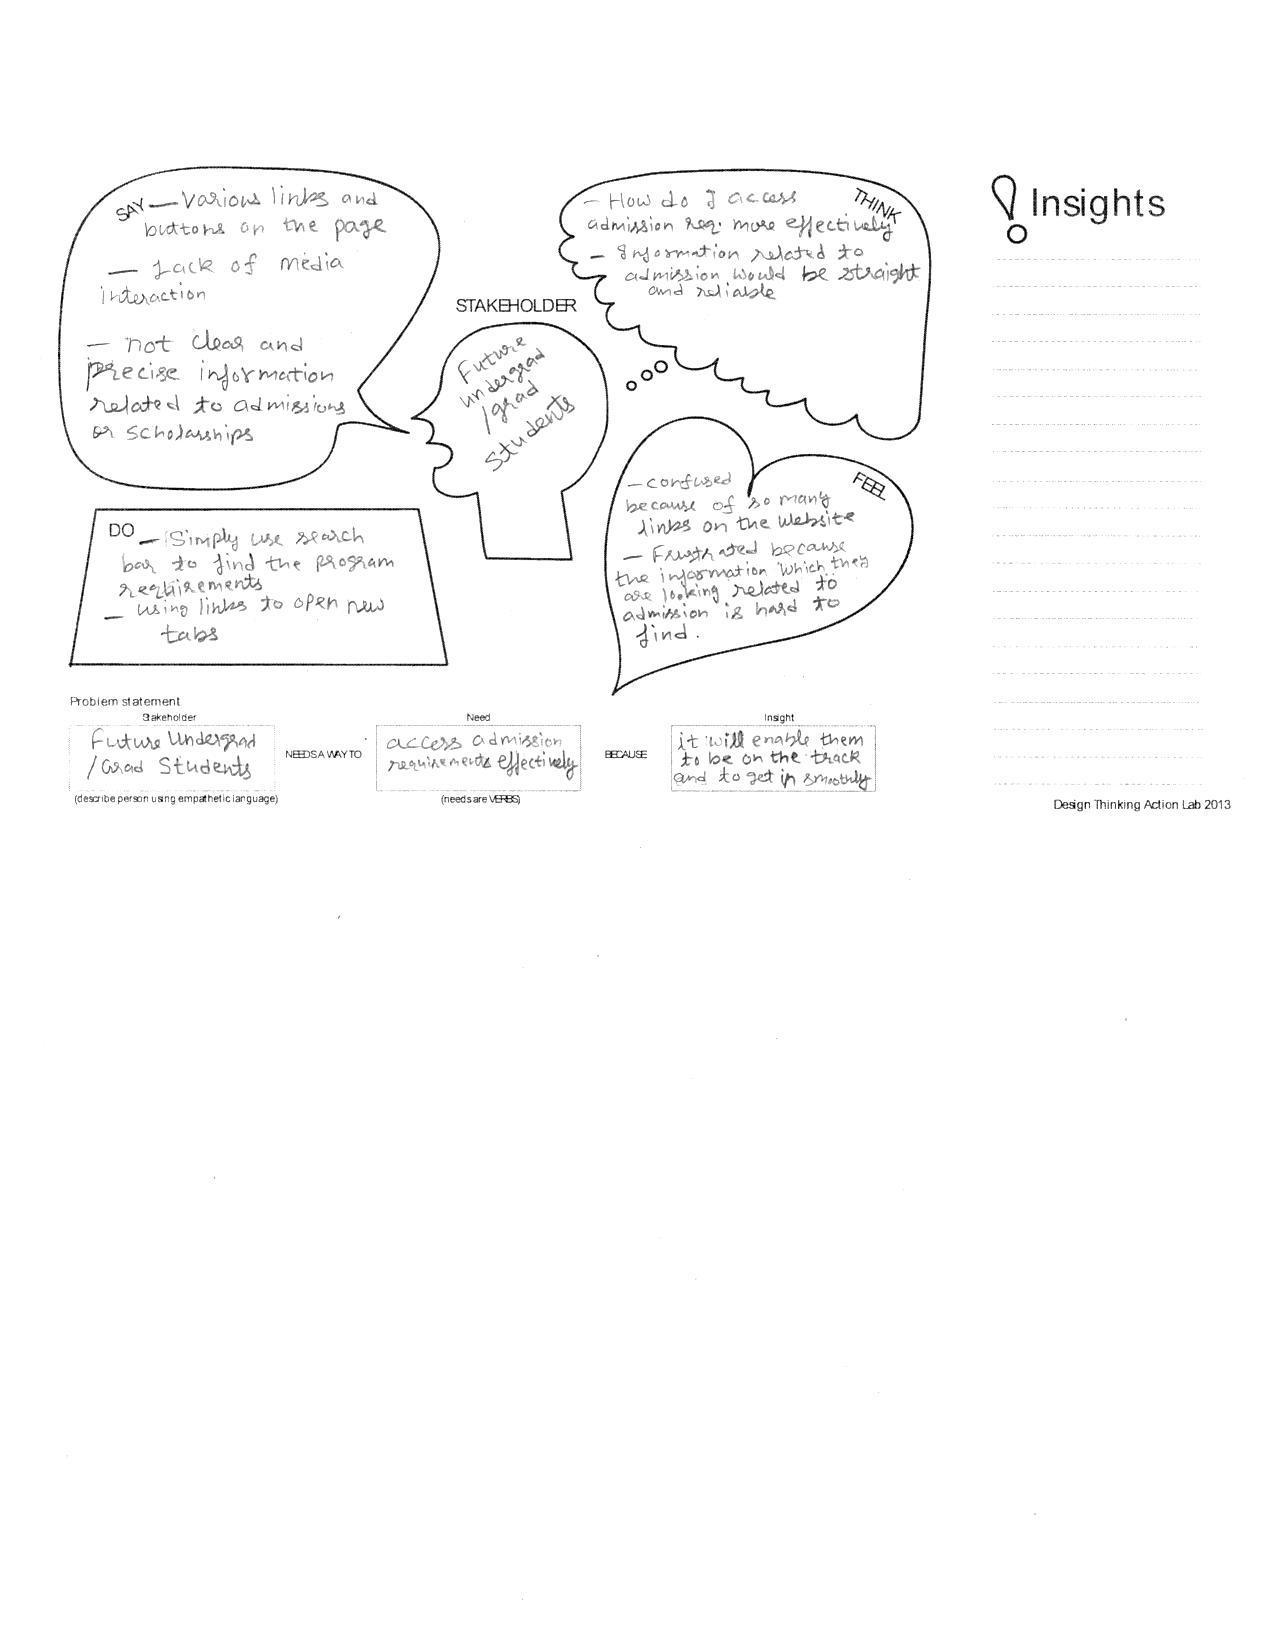 SAY — Various links and
buttons on the page
— Lack of media
interaction
— not clear and
Precise information
related to admissions
or scholarships
STAKEHOLDER
Future
undergrad
/grad
Students
THINK
- How do I access
admission req. more effectively
- Information related to
admission would be straight
and reliable
DO — Simply use search
bar to find the program
requirements
— using links to open new
tabs
FEEL
- confused
because of so many
links on the website
- Frustrated because
the information which they
are looking related to
admission is hard to
find.
Insights
Problem statement
Stakeholder
Future Undergrad
/Grad Students
(describe person using empathetic language)
NEEDS A WAY TO
Need
access admission
requirements effectively
(needs are VERBS)
BECAUSE
Insight
it will enable them
to be on the track
and to get in smoothly
Design Thinking Action Lab 2013